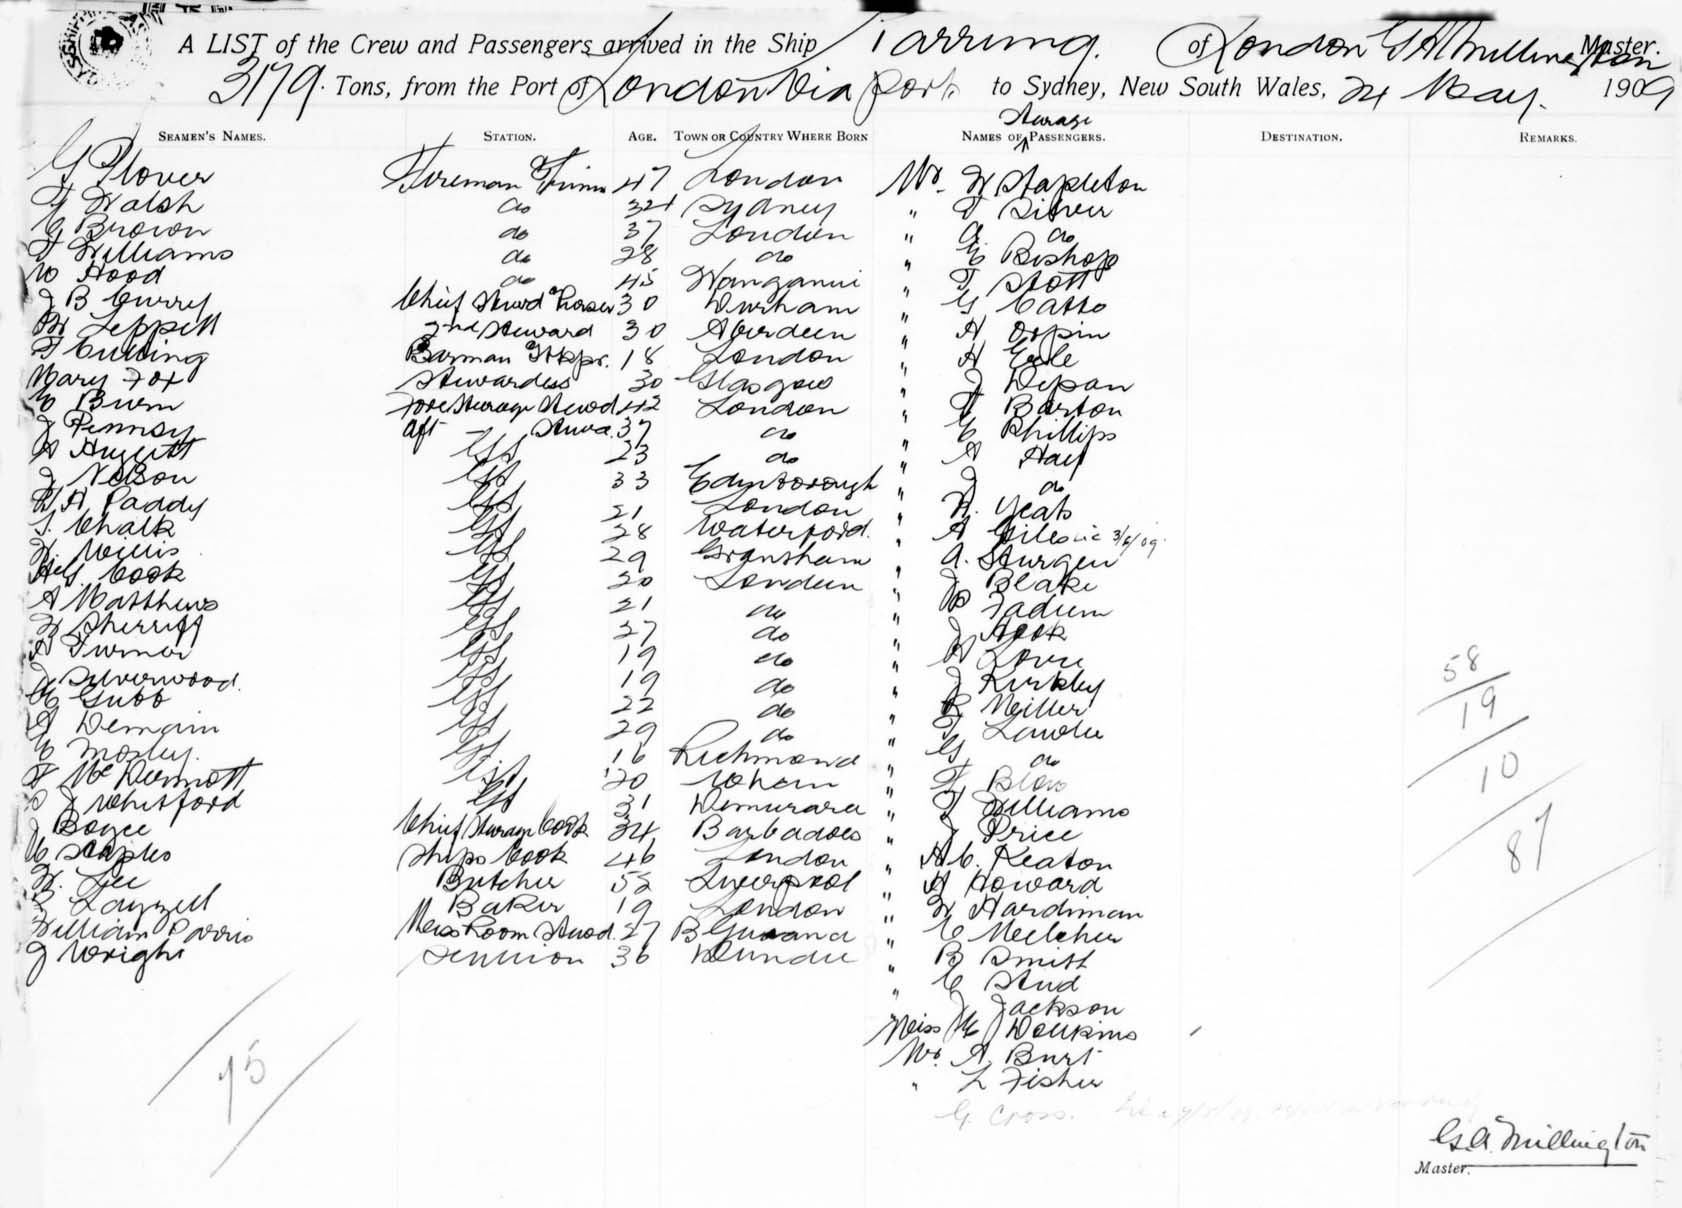 A LIST of the Crew and Passengers arrived in the Ship Narrung. of London G A Millington Master.
3179. Tons, from the Port of London Via ports to Sydney, New South Wales, 24 May. 1909
Steerage
SEAMEN'S NAMES. STATION. AGE. TOWN OR COUNTRY WHERE BORN NAMES OF PASSENGERS. DESTINATION. REMARKS.
G Plover Fireman & Trimr 47 London Mr. W Stapleton
T Walsh do 32 Sydney " T Silver
C Brown do 37 London " A. do
T Williams do 28 do " E Bishop
W Hood do 45 Wanganui " T Stott
J B Curry Chief Stewd & Purser 30 Durham " G Catto
W Leppitt 2nd Steward 30 Aberdeen " A Orpin
T Cutting Barman & Stkpr. 18 London " A Earle
Mary Fox Stewardess 30 Glasgow " J
C Burn Fore Steerage Stewd 42 London " F Barton
J Aft Stewd. 37 do " C Phillips
A Huggitt GS 23 do " A Hay
J Nelson GS 33 Edinborough " J do
W A Paddy GS 21 London " W. Yeats
S. Chalk GS 28 Waterford. " A Giles 3/6/09.
W. Willis GS 29 Grantham " A. Sturgeu
H G. Cook GS 20 London " J Blake
A Matthews GS 21 do " Fadum
W Sherriff GS 27 do " J Hook
A Turner GS 19 do " A Lowe
J Silverwood. GS 19 do " J Kirkby
C Gubb GS 22 do " R Miller
A Demain GS 29 do " T Lawdie
C Mosley. GS 16 Richmond " G do
F McDermott GS 20 " F Blow
S J Whitford GS 31 Demurara " F Williams
J Boyce Chief Steerage Cook 34 Barbadoes " J Price
C Staples Ships Cook 46 London " A C. Keaton
W. Lee Butcher 52 Liverpool " A Howard
R Lazzell Baker 19 London " W Hardiman
William Parris Mess Room Stewd. 27 B Guiana " C Melcher
J Wright 36 Dundee " B Smith
" C Stud
" J Jackson
Miss M Dawkins
Mr. A Burt
" L Fisher
G. Cross.
58
19
10
87
75
G.A. Millington
Master.